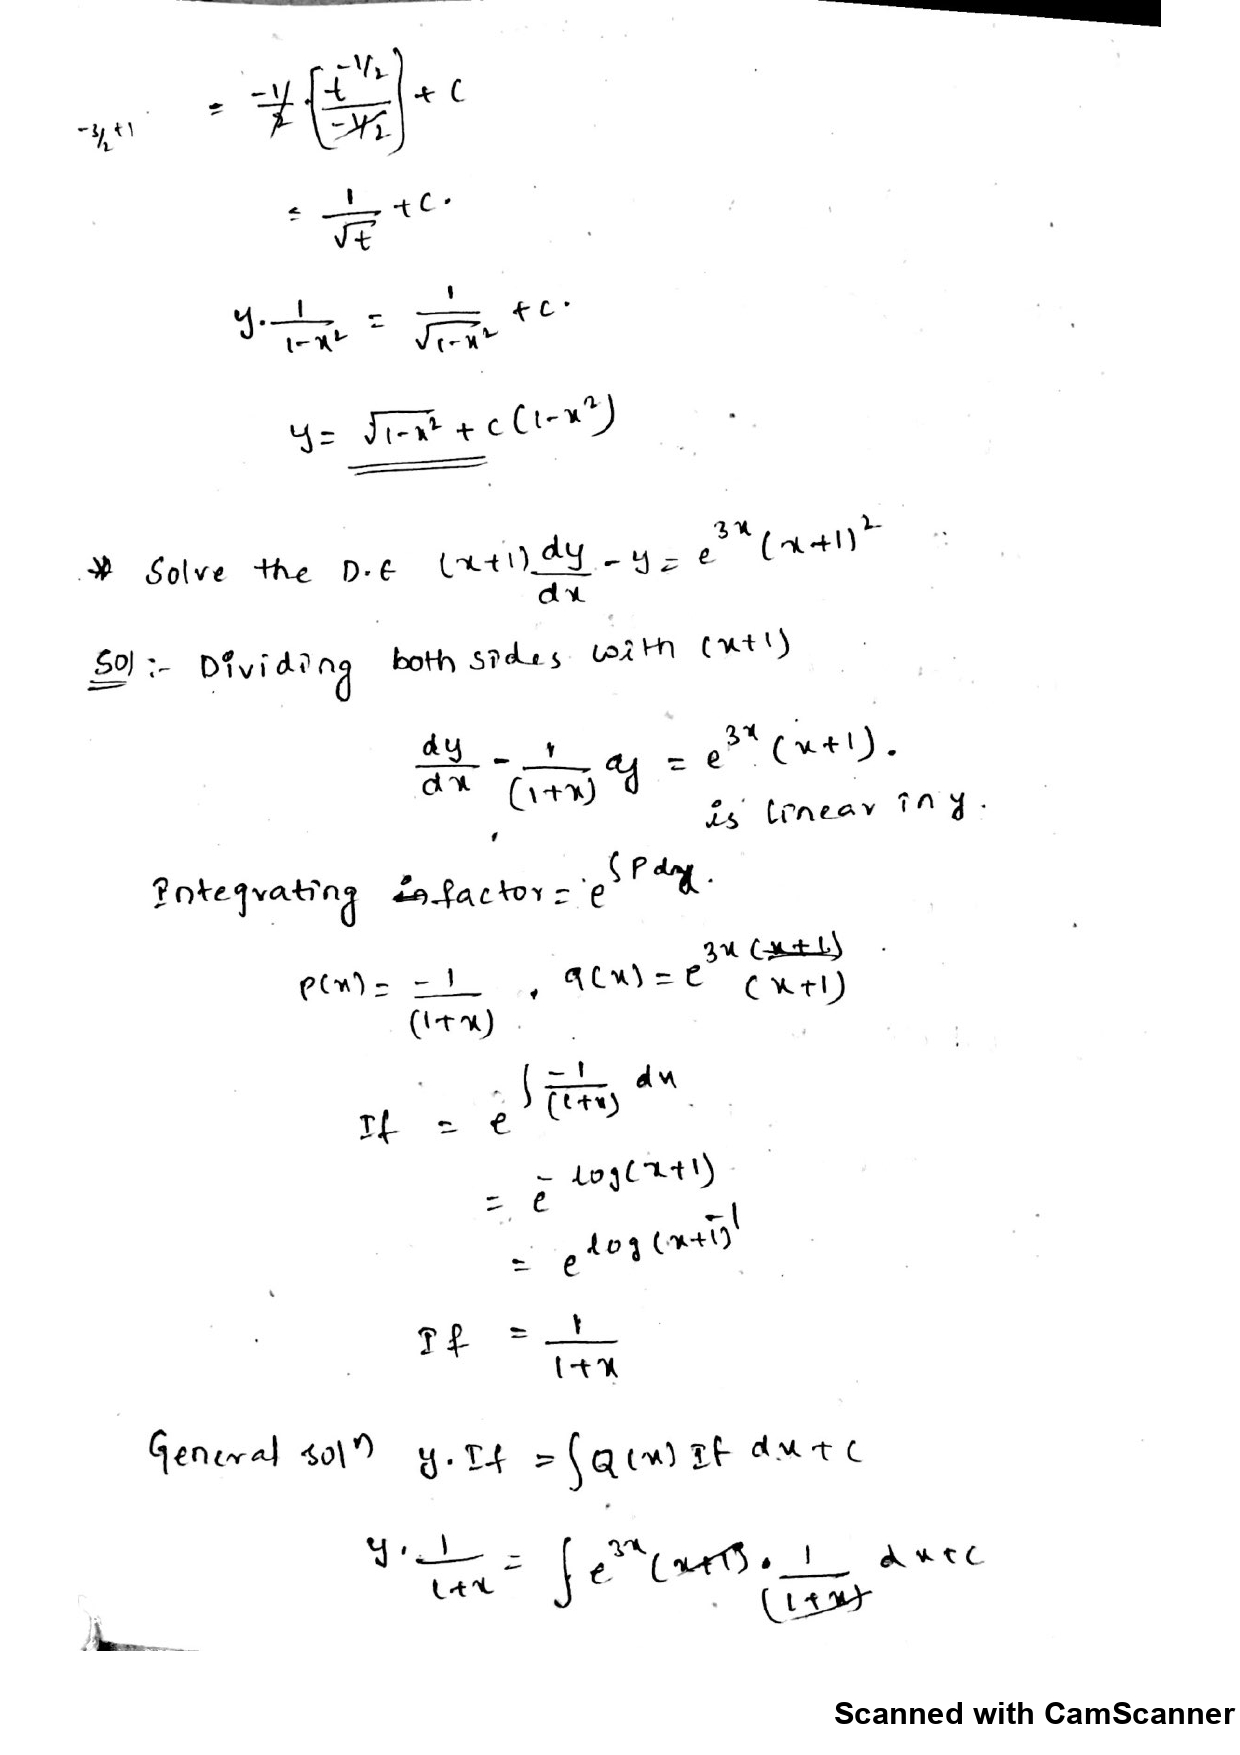 -3/2+1 = -1/2 · [t^(-1/2) / (-1/2)] + C
= 1/√t + C.
y. 1/(1-x²) = 1/√(1-x²) + C.
y = √(1-x²) + C(1-x²)
* Solve the D.E (x+1) dy/dx - y = e^3x (x+1)²
Sol :- Dividing both sides with (x+1)
dy/dx - 1/(1+x) y = e^3x (x+1).
is linear in y.
Integrating factor = e^∫P dx.
P(x) = -1/(1+x) , q(x) = e^3x (x+1)
If = e^∫ -1/(1+x) dx
= e^- log(x+1)
= e^log(x+1)^-1
If = 1/(1+x)
General solⁿ y. If = ∫Q(x) If dx + C
y. 1/(1+x) = ∫ e^3x (x+1) . 1/(1+x) dx + C
Scanned with CamScanner